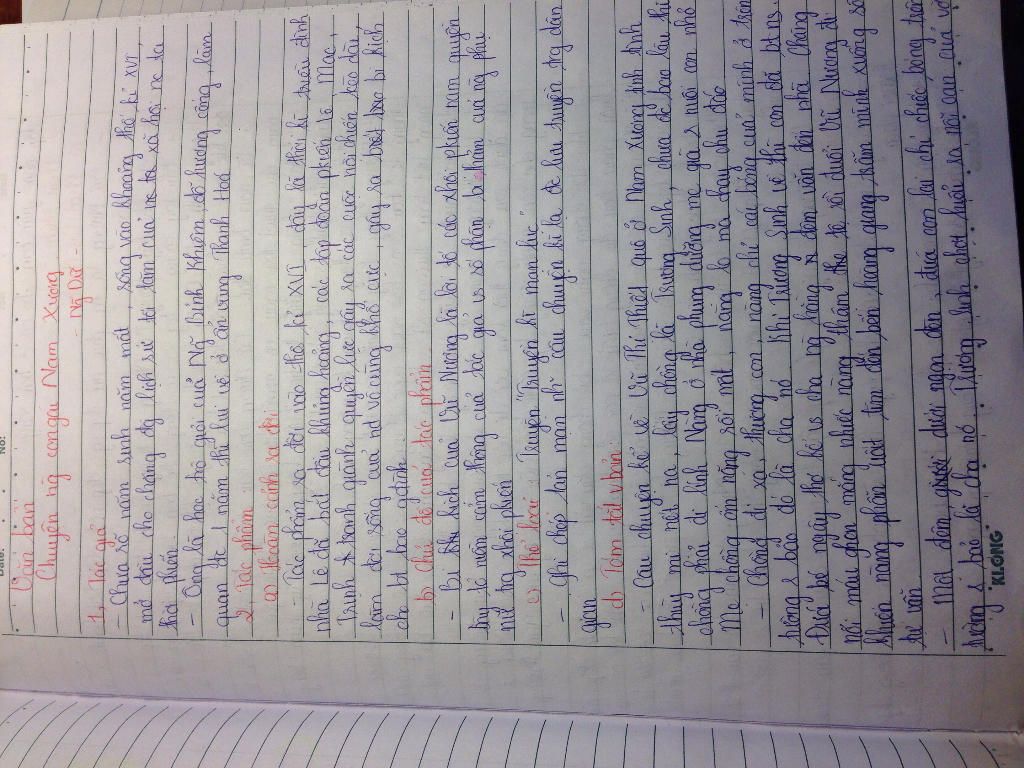 Date: No:
Văn bản
Chuyện ng con gái Nam Xương
- Ng Dữ -
1, Tác giả
- Chưa rõ năm sinh năm mất, sống vào khoảng thế kỉ XVI
mở đầu cho chặng đg lịch sử tối tăm của nc ta xã hội nc ta
thời phiến
- Ông là học trò giỏi của Ng Bỉnh Khiêm, đỗ hương cống, làm
quan đc 1 năm thì lui về ở ẩn vùng Thanh Hoá
2 Tác phẩm
a) Hoàn cảnh ra đời
- Tác phẩm ra đời vào thế kỉ XVI, đây là thời kì triều đình
nhà Lê đã bắt đầu khủng hoảng, các tập đoàn phiến Lê Mạc,
Trịnh tranh giành quyền lực gây ra các cuộc nội chiến kéo dài,
làm đời sống của nd vô cùng khổ cực, gây ra bi kịch
cho bt bao gđình
b) Chủ đề của tác phẩm
- Bi kịch của Vũ Nương là lời tố cáo xhội phiến nam quyền
bày tỏ niềm cảm thông của tác giả vs số phận bi thảm của ng phụ
nữ trg xhội phiến
c) Thể loại: Truyện "Truyền kì mạn lục"
- Ghi chép tản mạn nh~ câu chuyện kì lạ đc lưu truyền trg dân
gian
d, Tóm tắt v.bản
- Câu chuyện kể về Vũ Thị Thiết quê ở Nam Xương tính tình
thùy mị nết na, lấy chồng là Trương Sinh, chưa đc bao lâu thì
chồng phải đi lính Nàng ở nhà phụng dưỡng mẹ già, nuôi con nhỏ
Mẹ chồng ốm nặng rồi mất, nàng lo ma chay chu đáo
- Chồng đi xa, thương con, nàng chỉ cái bóng của mình ở trên
tường bảo đó là cha nó Khi Trương Sinh về thì con đã bt ns.
Đứa bé ngây thơ kể vs cha ng hàng đêm vẫn tới nhà Chàng
nổi máu ghen mắng nhiếc nàng thậm tệ rồi đuổi Vũ Nương đi
khiến nàng phẫn uất tìm đến bến Hoàng Giang trầm mình xuống sông
tự vẫn
- Một đêm dưới ngọn đèn, đứa con lại chỉ chiếc bóng trên
tường bảo là cha nó Trương Sinh chợt hiểu ra nỗi oan của vợ
KLONG